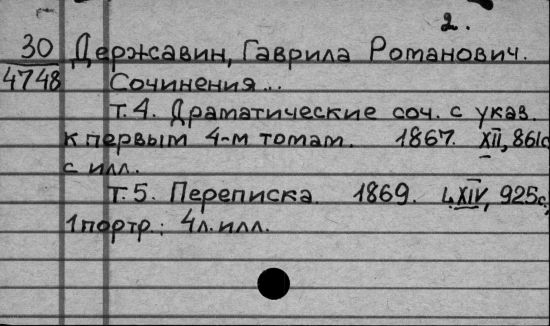 2.
30 Державин, Гаврила Романович.
4748 Сочинения...
т.4. Драматические соч. с указ.
к первым 4-м томам. 1867. XII, 861с
с илл.
Т.5. Переписка. 1869. LXIV, 925с.,
1 портр.; 4л. илл.